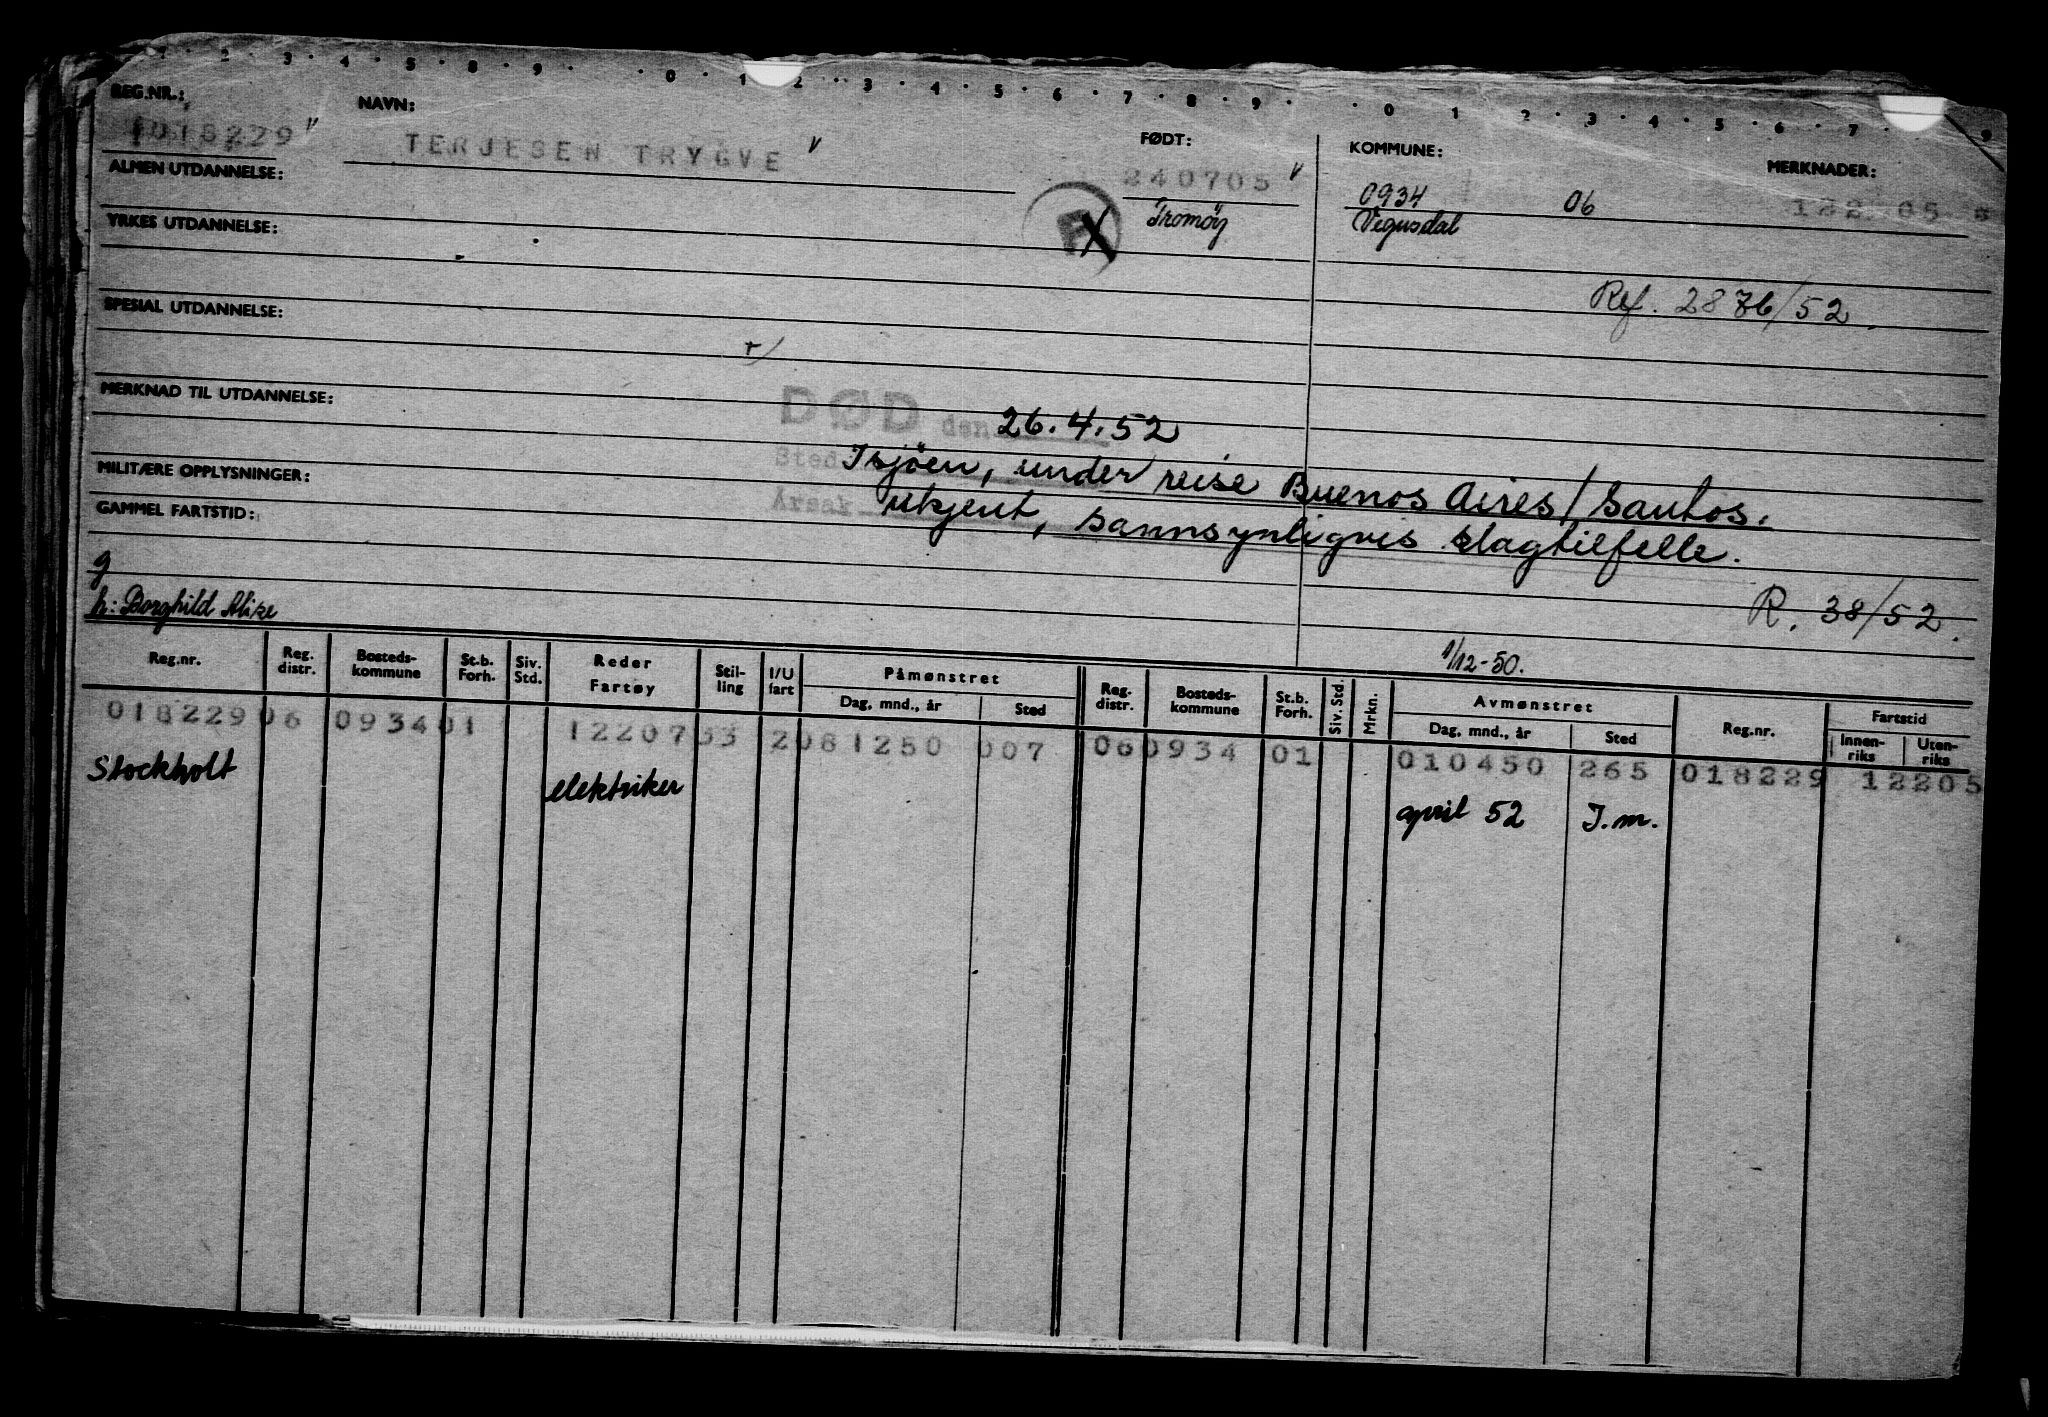 1 · 2 · 3 · 4 · 5 · 8 · 9 · · 0 · 1 · 2 · 3 · 4 · 5 · 6 · 7 · 8 · 9 · · 0 1 2 3 4 5 6 7 9
REG.NR.: NAVN: FØDT: KOMMUNE: MERKNADER:
018229 v TERJESEN TRYGVE v 240705 v 0934 06 122 05
ALMEN UTDANNELSE: Tromöy Vegusdal
YRKES UTDANNELSE:
Ref. 2876/52.
SPESIAL UTDANNELSE:
MERKNAD TIL UTDANNELSE:
DØD den 26.4.52
Sted Isjöen, under reise Buenos Aires/Santos.
MILITÆRE OPPLYSNINGER:
Årsak ukjent, sannsynligvis slagtilfelle.
GAMMEL FARTSTID:
g
h: Borghild Alise R. 38/52.
1/12-50.
Reg.nr. Reg. distr. Bosteds- kommune St.b. Forh. Siv. Std. Reder Fartøy Stil- ling I/U fart Påmønstret Dag, mnd., år Sted Reg. distr. Bosteds- kommune St.b. Forh. Siv. Std. Mrkn. Avmønstret Dag, mnd., år Sted Reg.nr. Fartstid Innen- riks Uten- riks
018229 06 0934 01 12207 33 2 081250 007 06 0934 01 010450 265 018229 12205
Stockholt elektriker april 52 I.m.